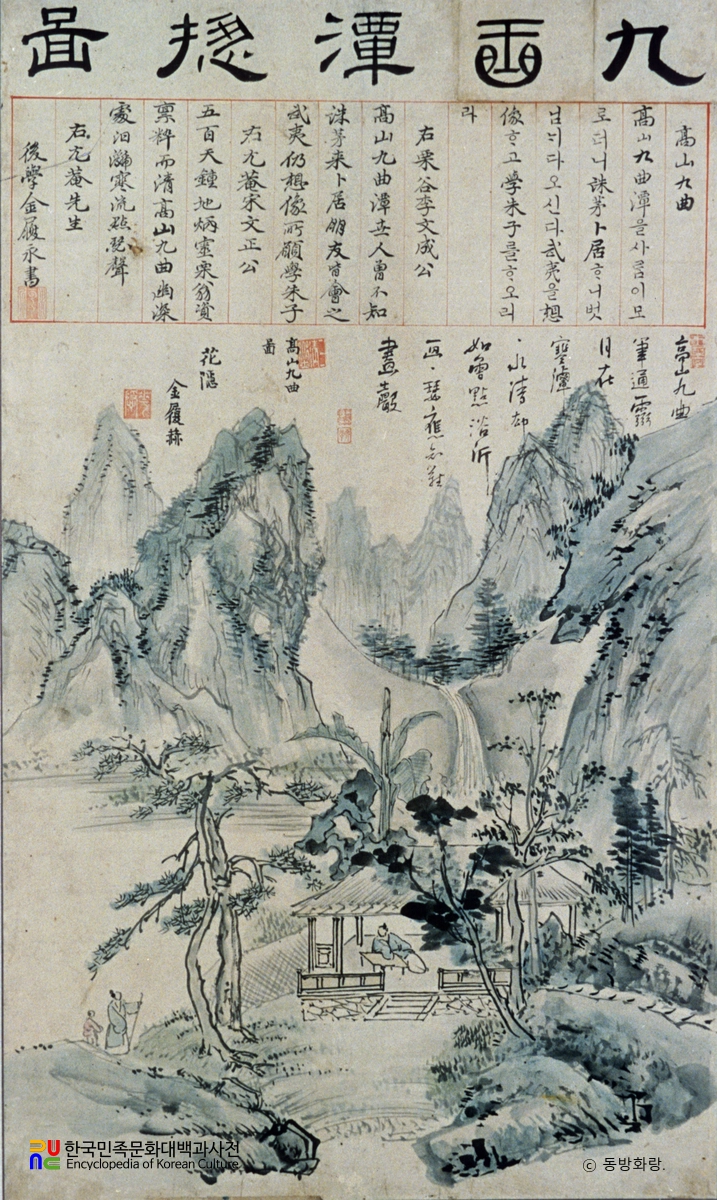 九曲潭摠啚
高山九曲
高山九曲潭을사ᄅᆞᆷ이모
로더니誅茅卜居ᄒᆞ니벗
님ᄂᆡ다오신다武夷을想
像ᄒᆞ고學朱子를ᄒᆞ오리
라
右栗谷李文成公
高山九曲潭世人曾不知
誅茅來卜居朋友皆會之
武夷仍想像所願學朱子
右尤菴宋文正公
五百天鍾地炳靈栗翁資
稟粹而清高山九曲幽深
處汩㶁寒流點瑟聲
右尤菴先生
後學金履永書
高山九曲
筆通靈
月在
寒潭
水清却
如曾點浴沂
瑟應亦難
畫
高山九曲
啚
花隱
金履赫
한국민족문화대백과사전
Encyclopedia of Korean Culture
ⓒ 동방화랑.